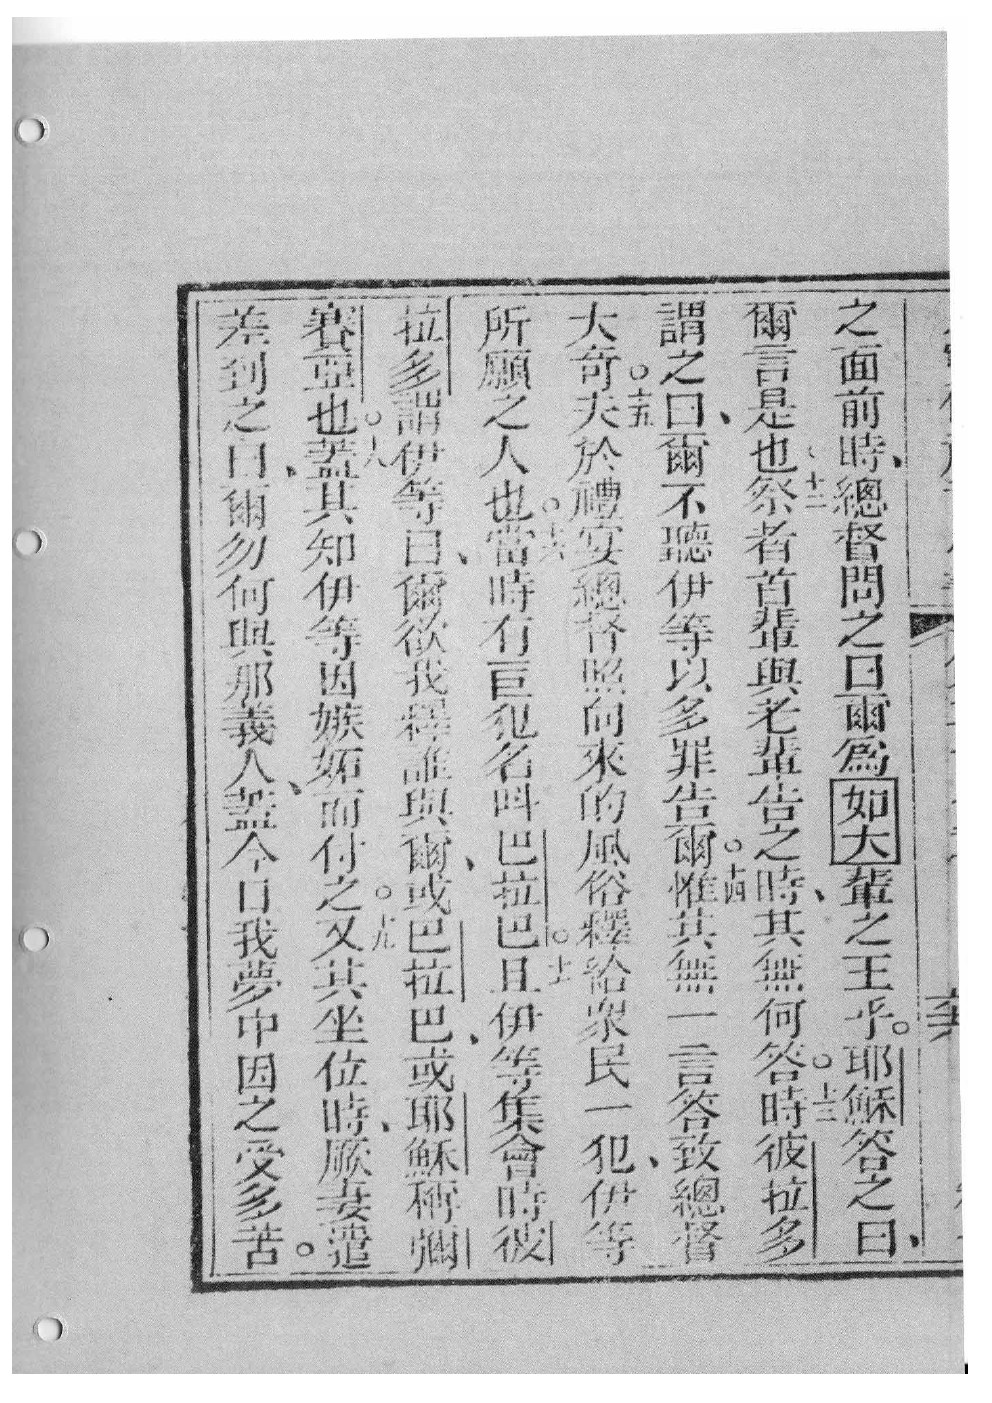 之面前時、總督問之曰爾為如大輩之王乎。耶穌答之曰、
爾言是也十二祭者首輩與老輩告之時、其無何答時。十三彼拉多
謂之曰、爾不聽伊等以多罪告爾。十四惟其無一言答、致總督
大奇。十五夫於禮宴總督照向來的風俗釋給眾民一犯、伊等
所願之人也。十六當時有巨犯名呌巴拉巴。十七且伊等集會時彼
拉多謂伊等曰、爾欲我釋誰與爾、或巴拉巴、或耶穌稱彌
賽亞也。十八蓋其知伊等因嫉妬而付之。十九又其坐位時、厥妻遣
差到之曰、爾勿何與那義人、蓋今日我夢中因之受多苦。